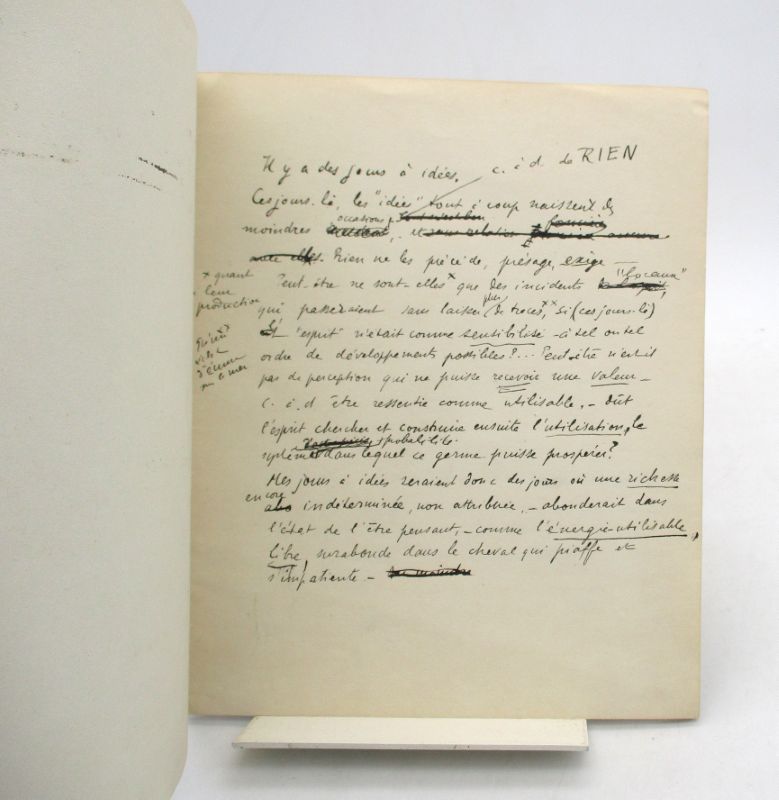 Il y a des jours à idées. c. à d. de RIEN
Ces jours-là, les "idées" tout à coup naissent des
moindres occasions,
Rien ne les précède, présage, exige —
Peut-être ne sont-elles × que des incidents "locaux",
× quant
à leur
production
qui passeraient sans laisser plus de traces, ×× si (ces jours-là)
l'esprit n'était comme sensibilisé — à tel ou tel
ordre de développements possibles?... Peut-être n'est-il
pas de perception qui ne puisse recevoir une valeur —
c. à. d être ressentie comme utilisable, — dût
l'esprit chercher et construire ensuite l'utilisation, le
probabilité.
système dans lequel ce germe puisse prospérer?
Mes jours à idées seraient donc des jours où une richesse
encore indéterminée, non attribuée, — abonderait dans
l'état de l'être pensant, — comme l'énergie utilisable,
libre surabonde dans le cheval qui piaffe et
s'impatiente —